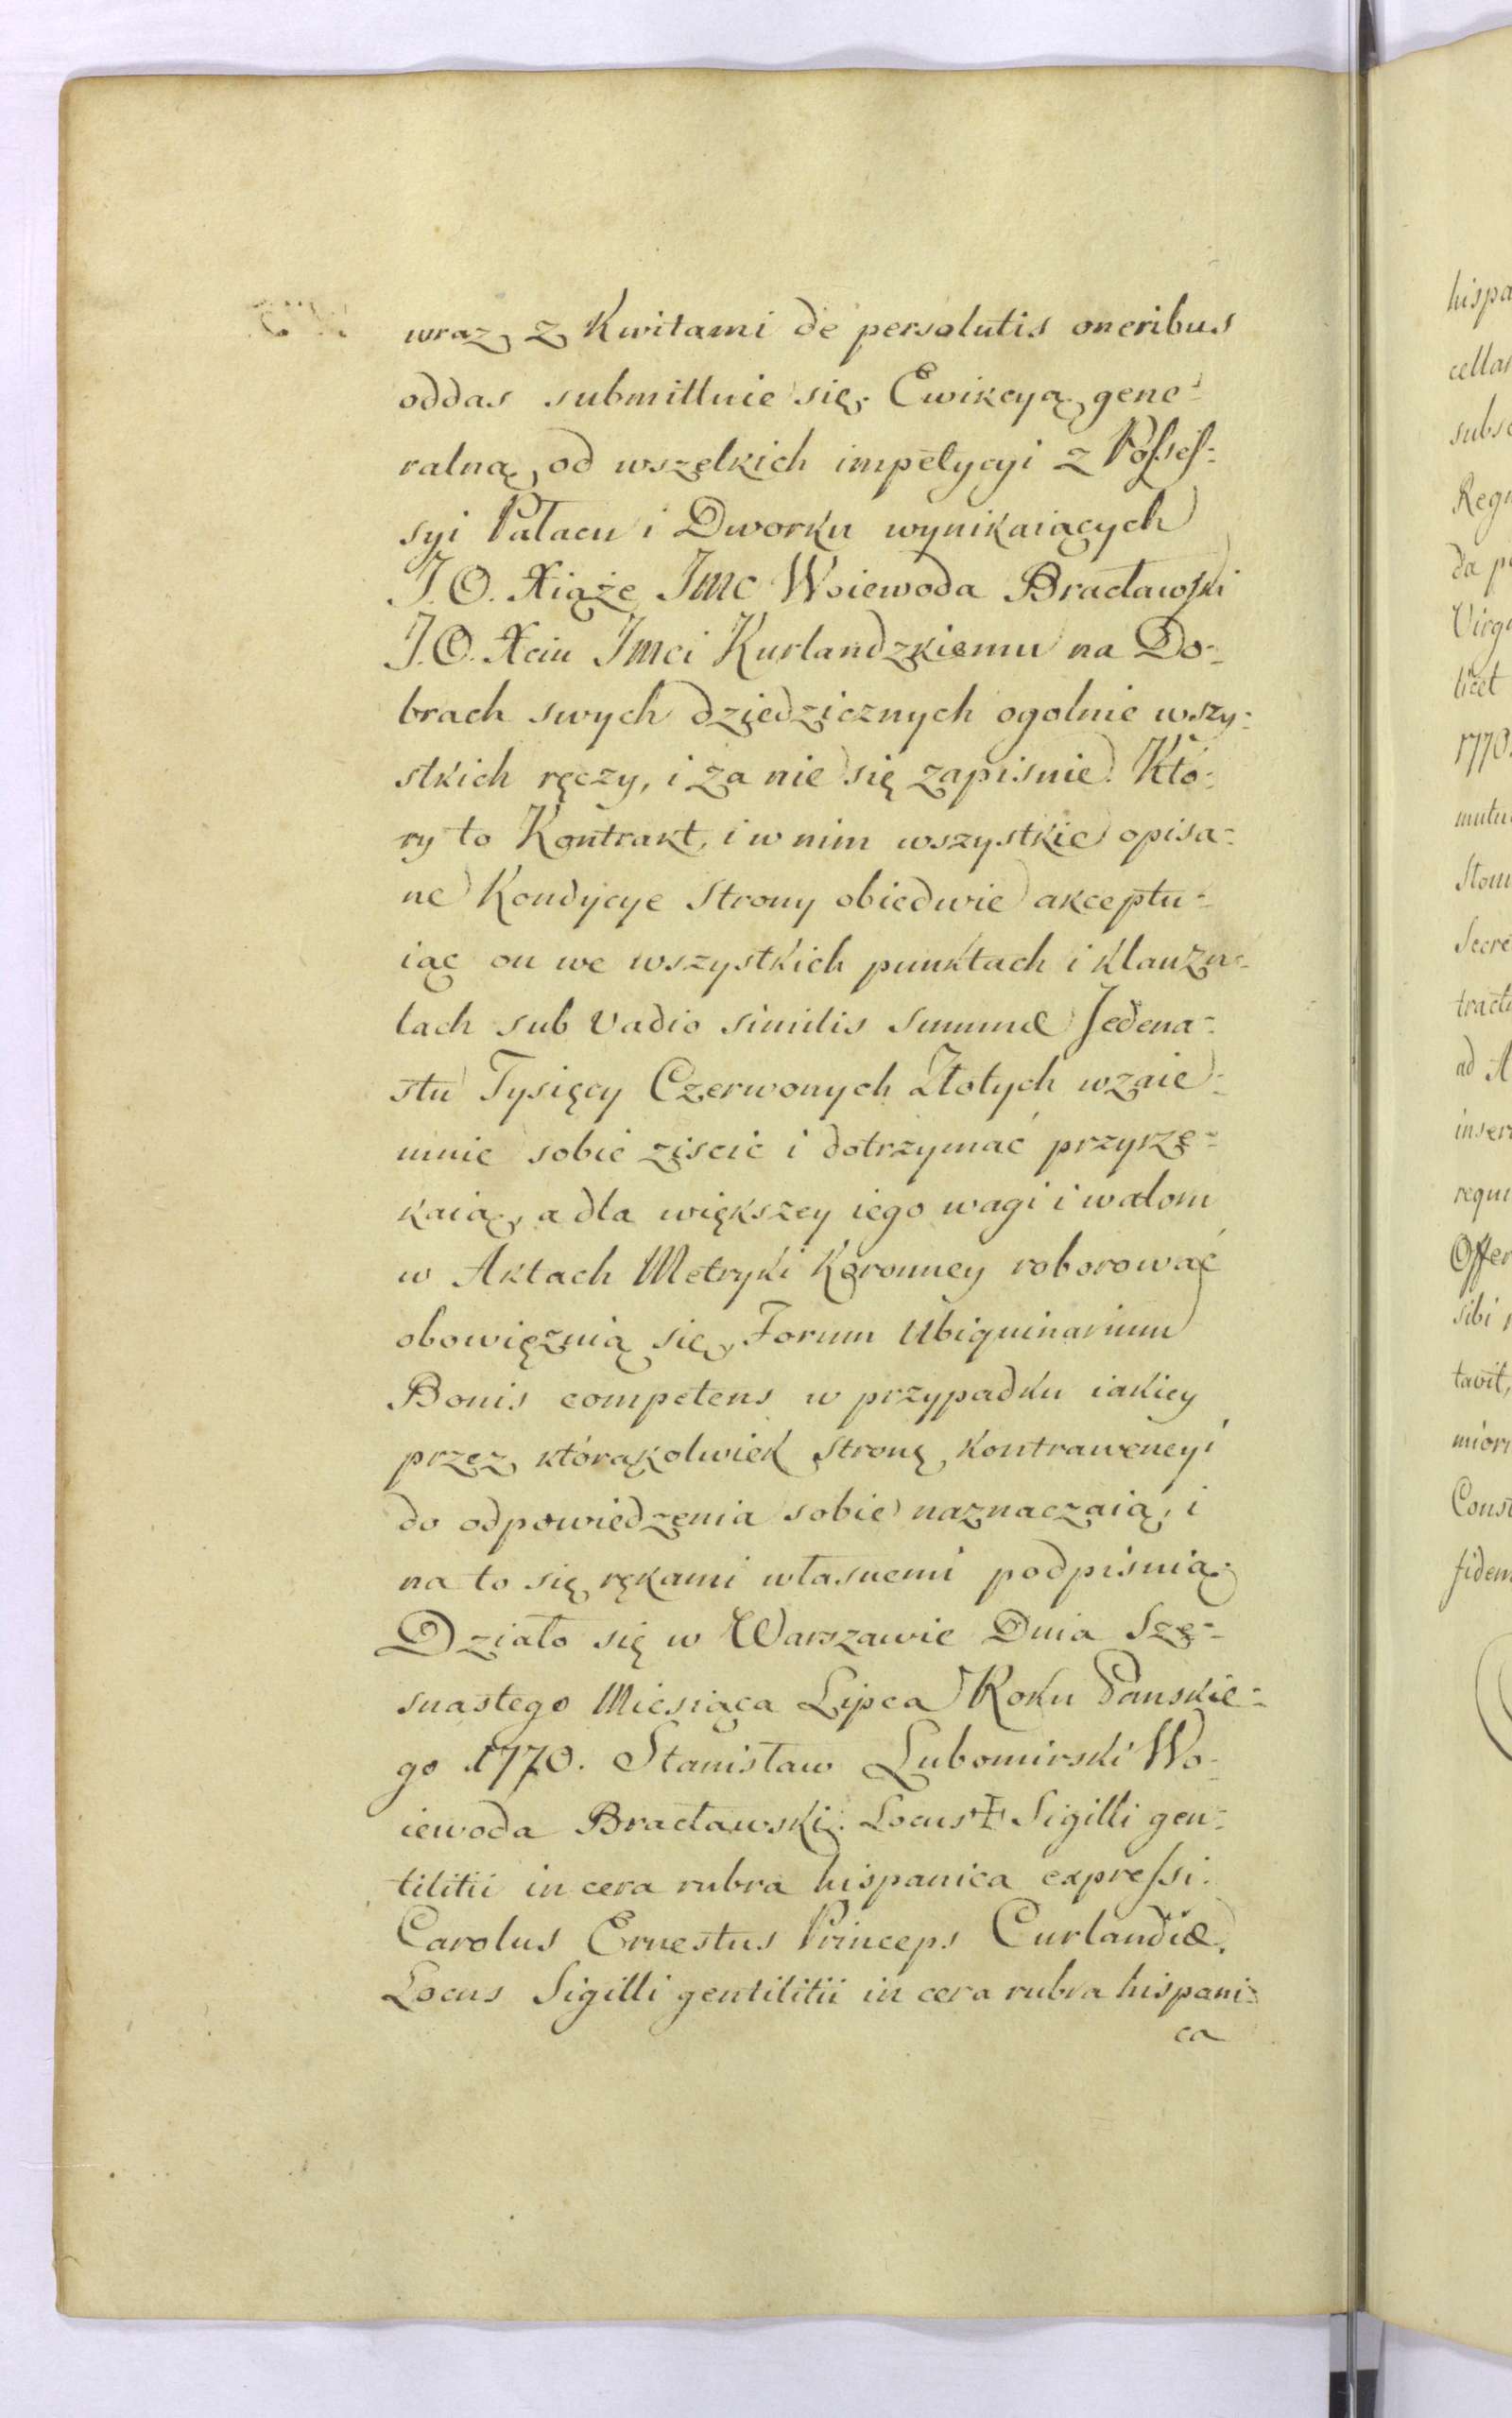 wraz z Kwitami de persolutis oneribus
oddas submittuie się. Ewikcyą gene-
ralną, od wszelkich impetycyi z Possess-
syi Pałacu i Dworku wynikaiących
J.O. Xiąże Imc Woiewoda Bracławski
J.O. Xciu Imci Kurlandzkiemu na Do-
brach swych dziedzicznych ogolnie wszy-
stkich ręczy, i za nie się zapisuie. Któ-
ry to Kontrakt, i w nim wszystkie opisa-
ne Kondycye Strony obiedwie akceptu-
iąc on we wszystkich punktach i klauzu-
lach sub vadio similis summæ Jedena-
stu Tysięcy Czerwonych Złotych wzaie-
mnie sobie ziscić i dotrzymać przyrze-
kaią, a dla większey iego wagi i waloru
w Aktach Metryki Koronney roborować
obowięzuią się, Forum Ubiquinarium
Bonis competens w przypadku iakiey
przez którąkolwiek stronę kontrawencyi
do odpowiedzenia sobie naznaczaią, i
na to się rękami własnemi podpisuią.
Działo się w Warszawie Dnia Sze-
snastego Miesiąca Lipca Roku Panskie-
go 1770. Stanisław Lubomirski Wo-
iewoda Bracławski. Locus ✝ Sigilli gen-
tilitii in cera rubra hispanica expressi.
Carolus Ernestus Princeps Curlandiæ.
Locus Sigilli gentilitii in cera rubra hispani-
ca
hispa
cellar
Reg
da p
Virg
licet
1770
mutu
Secre
tract
ad A
inser
requi
Offer
sibi
tavit,
Const
fidem